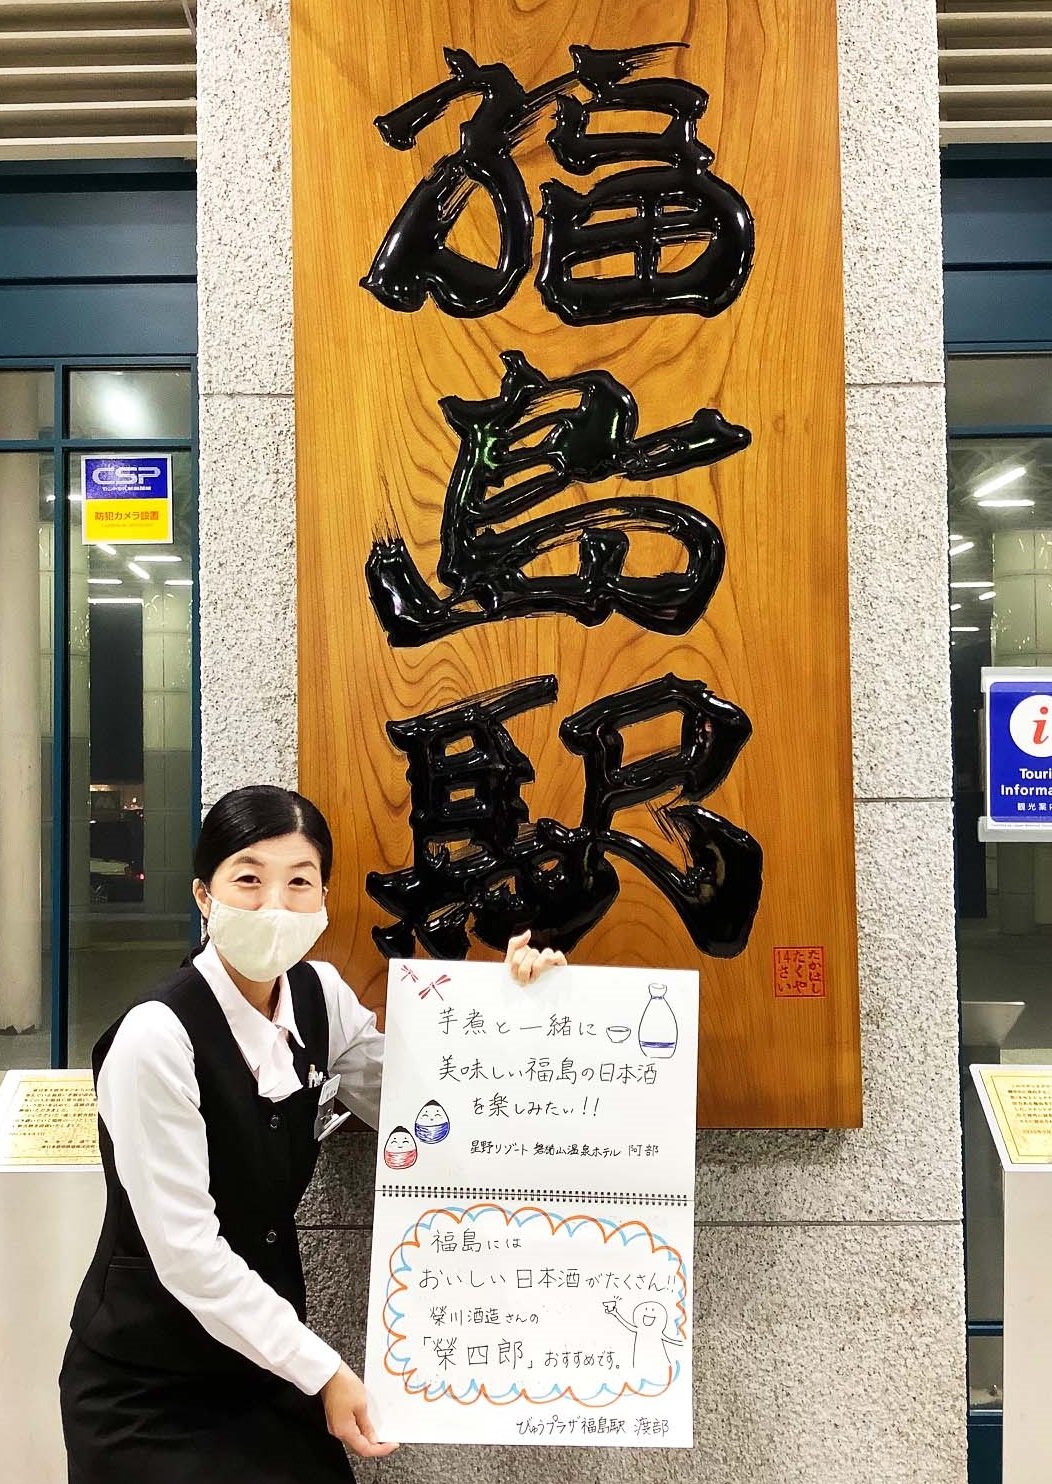 福島駅
たかはし
たくや
14さい
CSP
防犯カメラ設置
i
Touri
Informa
観光案内
芋煮と一緒に
美味しい福島の日本酒
を楽しみたい!!
星野リゾート 磐梯山温泉ホテル 阿部
福島には
おいしい日本酒がたくさん!!
榮川酒造さんの
「榮四郎」おすすめです。
びゅうプラザ福島駅 渡部